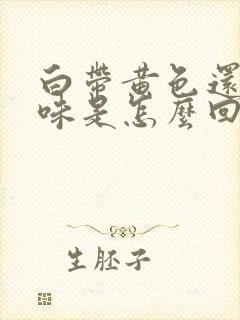 白帶黃色還
味是怎麼回
生胚子